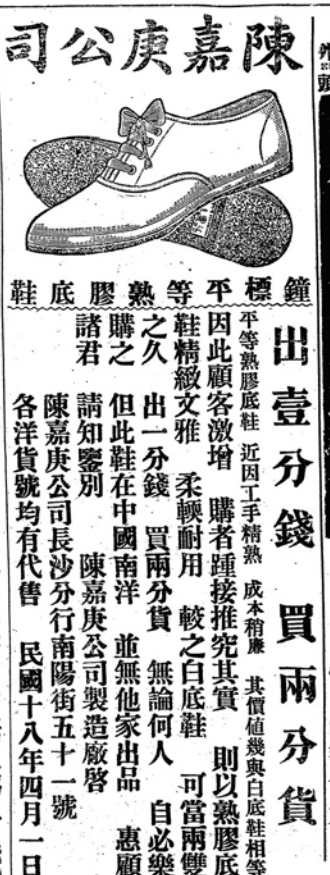 陳嘉庚公司
鐘標平等熟膠底鞋
出壹分錢 買兩分貨
平等熟膠底鞋 近因工手精熟 成本稍廉 其價値幾與白底鞋相等
因此顧客激增 購者踵接推究其實 則以熟膠底
鞋精緻文雅 柔輭耐用 較之白底鞋 可當兩雙
之久 出一分錢 買兩分貨 無論何人 自必樂
購之 但此鞋在中國南洋 並無他家出品 惠顧
諸君 請知鑒別 陳嘉庚公司製造廠啓
陳嘉庚公司長沙分行南陽街五十一號
各洋貨號均有代售 民國十八年四月一日